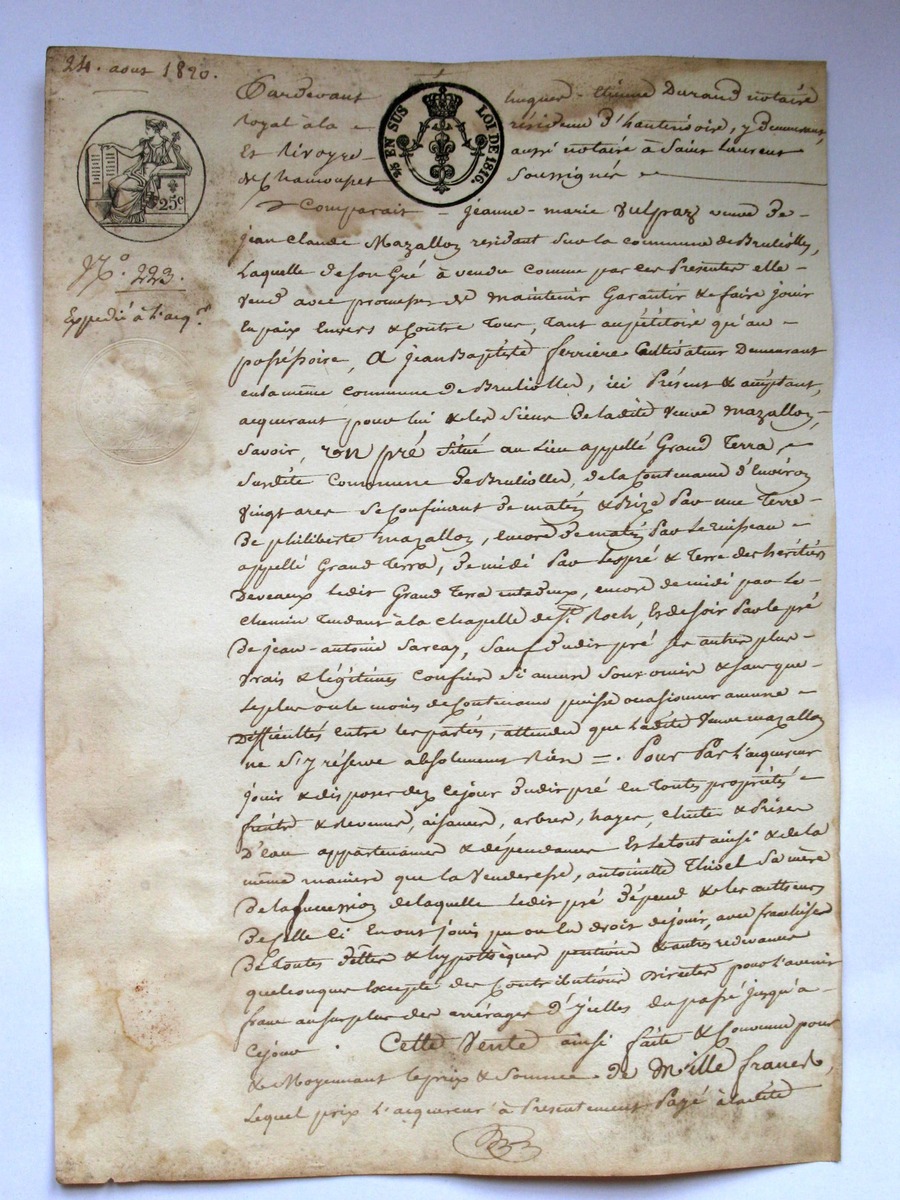 24. aout 1820.
25 c
25 EN SUS LOI DE 1816.
N.° 223.
Expedié à l'acq.r
Pardevant hugues-Etienne Durand notaire
royal à la résidence d'hauterivoire, y demeurant
Et Rivoyre aussi notaire à Saint Laurent
de Chamousset soussignés
Comparait jeanne-marie Vulpaz veuve de
jean Claude Mazallon residant sur la commune de Bruliolles,
Laquelle de son Gré à vendu comme par ces Presentes elle
vend avec promesse de maintenir Garantir & faire jouir
En paix Envers & Contre Tous, tant au pétitoire qu'au
posséssoire, A jean Baptiste ferriere Cultivateur Demeurant
en la même commune de Bruliolles, ici Présent & acceptant,
acquerant pour lui & les siens De ladite veuve mazallon,
Savoir, un pré Situé au Lieu appellé Grand Terra,
Susdite Commune De Bruliolles, de la Contenance d'Environ
vingt ares Se Confinant De matin & Bize Par une Terre
De philiberte mazallon, encore De matin Par Le ruisseau
appellé Grand Terra, De midi Par les pré & Terre des héritiers
Deveaux Ledit Grand Terra entre deux, encore de midi par Le
Chemin Tendant à la Chapelle de St. Roch, Et de soir Par le pré
De jean-antoine Sarcay, Sauf Dudit pré Ses autres plus
vrais & légitimes Confins Si aucuns Sont omis & Sans que
Le plus ou le moins de Contenance puisse occasionner aucune
Difficultés entre les parties, attendu que Ladite Veuve mazallon
ne S'y réserve absolument Rien =. Pour Par L'acquereur
jouir & disposer dez Ce jour Dudit pré En Toutes propriétés
fruits & revenus, aisances, arbres, hayes, & Prises
D'eau appartenances & dépendances Et Le tout ainsi & de la
même maniere que la Venderesse, antoinette Thivel Sa mère
De la succession de laquelle Ledit pré Dépend & les autheurs
De Celle Ci En ont joui pu ou Eu droit de jouir, avec franchise
De toutes Dettes & hypothèques pentions & autres redevances
quelconques Excepté des Contributions Directes pour L'avenir
franc au surplus des arrérages D'Icelles du passé jusqu'à
Ce jour. Cette Vente ainsi faite & Convenue pour
& Moyennant le prix & Somme De Mille francs,
Lequel prix L'acquereur à Presentement Payé à ladite